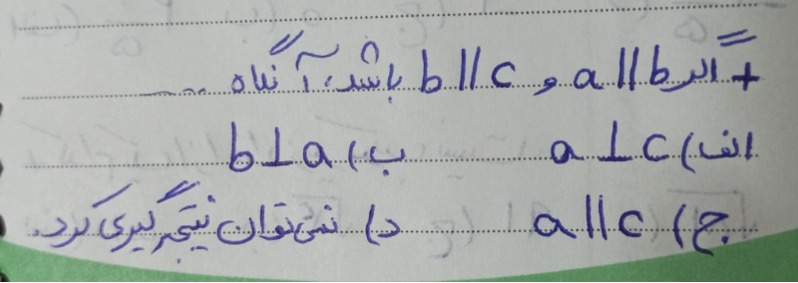 + اگر a||b و b||c باشد، آنگاه ....
الف) a⊥c ب) b⊥a
ج) a||c د) نمی‌توان نتیجه‌گیری کرد.